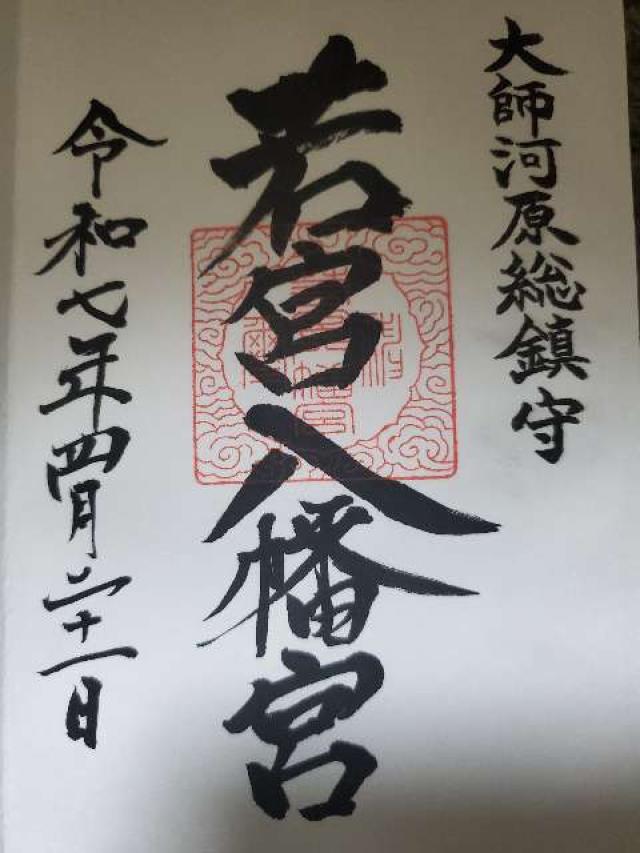 大師河原総鎮守
若宮八幡宮
令和七年四月二十一日